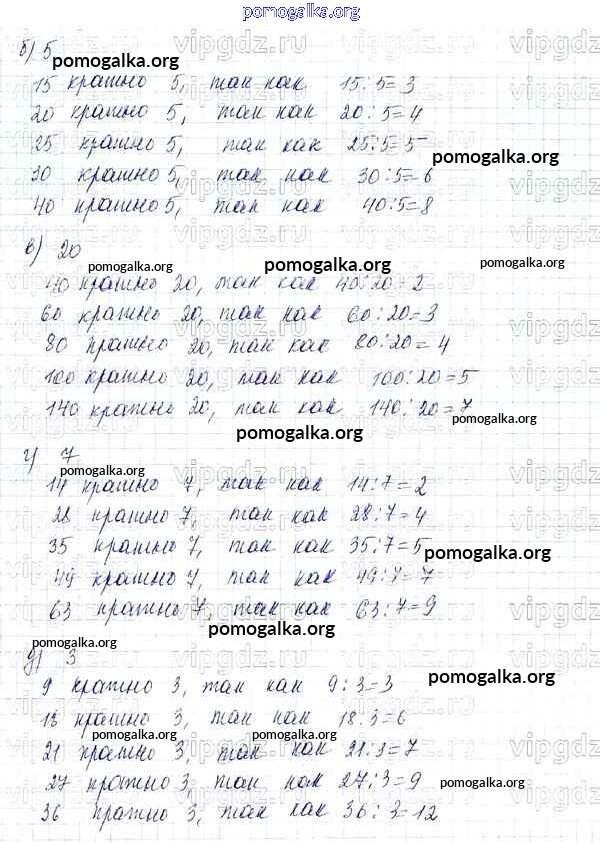 pomogalka.org
б) 5
pomogalka.org
15 кратно 5, так как 15:5=3
20 кратно 5, так как 20:5=4
25 кратно 5, так как 25:5=5
pomogalka.org
30 кратно 5, так как 30:5=6
40 кратно 5, так как 40:5=8
в) 20
pomogalka.org pomogalka.org
40 кратно 20, так как 40:20=2
60 кратно 20, так как 60:20=3
80 кратно 20, так как 80:20=4
100 кратно 20, так как 100:20=5
140 кратно 20, так как 140:20=7
pomogalka.org
pomogalka.org
г) 7
14 кратно 7, так как 14:7=2
28 кратно 7, так как 28:7=4
35 кратно 7, так как 35:7=5
pomogalka.org
49 кратно 7, так как 49:7=7
63 кратно 7, так как 63:7=9
pomogalka.org
pomogalka.org
д) 3
9 кратно 3, так как 9:3=3
pomogalka.org
18 кратно 3, так как 18:3=6
pomogalka.org pomogalka.org
21 кратно 3, так как 21:3=7
27 кратно 3, так как 27:3=9
pomogalka.org
36 кратно 3, так как 36:3=12